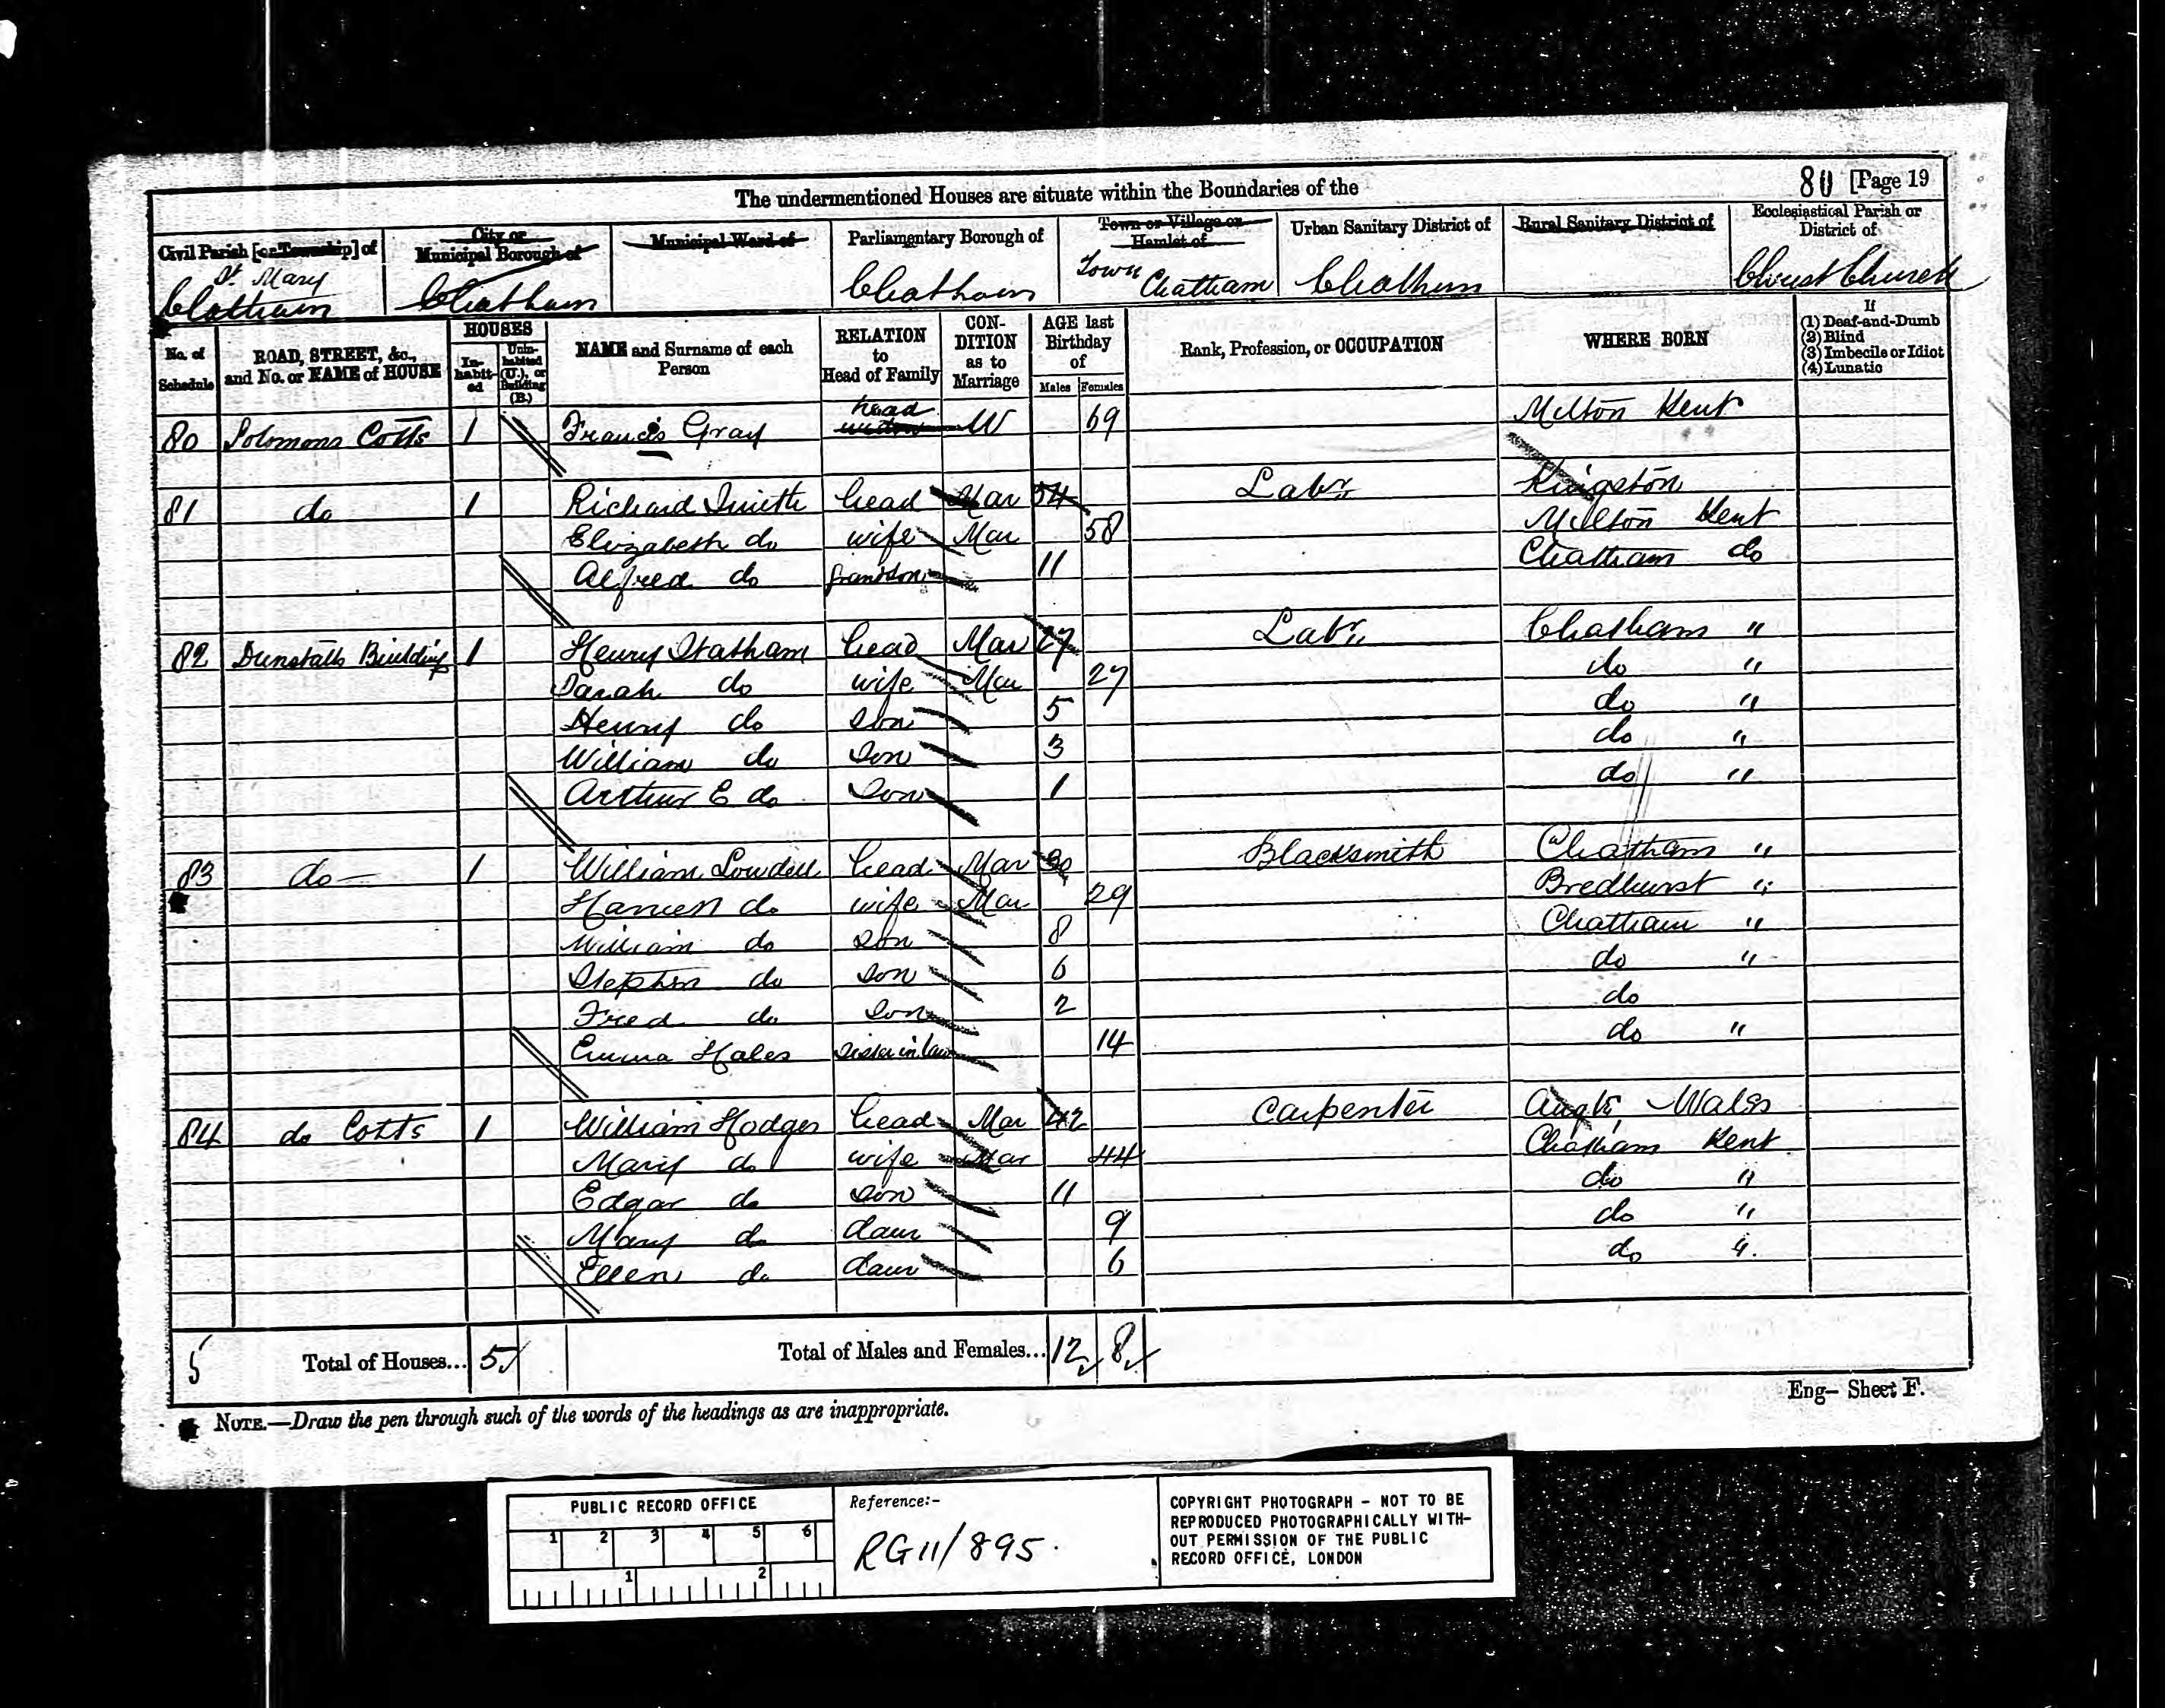 80 [Page 19
The undermentioned Houses are situate within the Boundaries of the
Civil Parish [or Township] of
St. Mary
Chatham
City or
Municipal Borough of
Chatham
Municipal Ward of
Parliamentary Borough of
Chatham
Town or Village or
Hamlet of
Town
Chatham
Urban Sanitary District of
Chatham
Rural Sanitary District of
Ecclesiastical Parish or
District of
Christ Church
No. of
Schedule
ROAD, STREET, &c.,
and No. or NAME of HOUSE
HOUSES
In-
habit-
ed
Unin-
habited
(U.), or
Building
(B.)
NAME and Surname of each
Person
RELATION
to
Head of Family
CON-
DITION
as to
Marriage
AGE last
Birthday
of
Males Females
Rank, Profession, or OCCUPATION
WHERE BORN
If
(1) Deaf-and-Dumb
(2) Blind
(3) Imbecile or Idiot
(4) Lunatic
80 Solomons Cotts 1 Francis Gray widow head W 69 Milton Kent
81 do 1 Richard Smith head Mar 54 Labr Kingston
Elizabeth do wife Mar 58 Milton Kent
Alfred do grandson 11 Chatham do
82 Dunstalls Building 1 Henry Statham head Mar 27 Labr Chatham "
Sarah do wife Mar 27 do "
Henry do son 5 do "
William do Son 3 do "
Arthur E do Son 1 do "
83 do 1 William Lowdell head Mar 30 Blacksmith Chatham "
do wife Mar 29 Bredhurst "
William do son 8 Chatham "
Stephen do son 6 do "
Fred do Son 2 do
Emma Hales Sister in law 14 do "
84 do Cotts 1 William Hodges head Mar 42 Carpenter Wales
Mary do wife Mar 44 Chatham Kent
Edgar do son 11 do "
Mary do daur 9 do "
Ellen do daur 6 do "
5 Total of Houses... 5 Total of Males and Females... 12 8
Eng— Sheet F.
NOTE.—Draw the pen through such of the words of the headings as are inappropriate.
PUBLIC RECORD OFFICE
1 2 3 4 5 6
1 2
Reference:-
RG11/895.
COPYRIGHT PHOTOGRAPH - NOT TO BE
REPRODUCED PHOTOGRAPHICALLY WITH-
OUT PERMISSION OF THE PUBLIC
RECORD OFFICE, LONDON